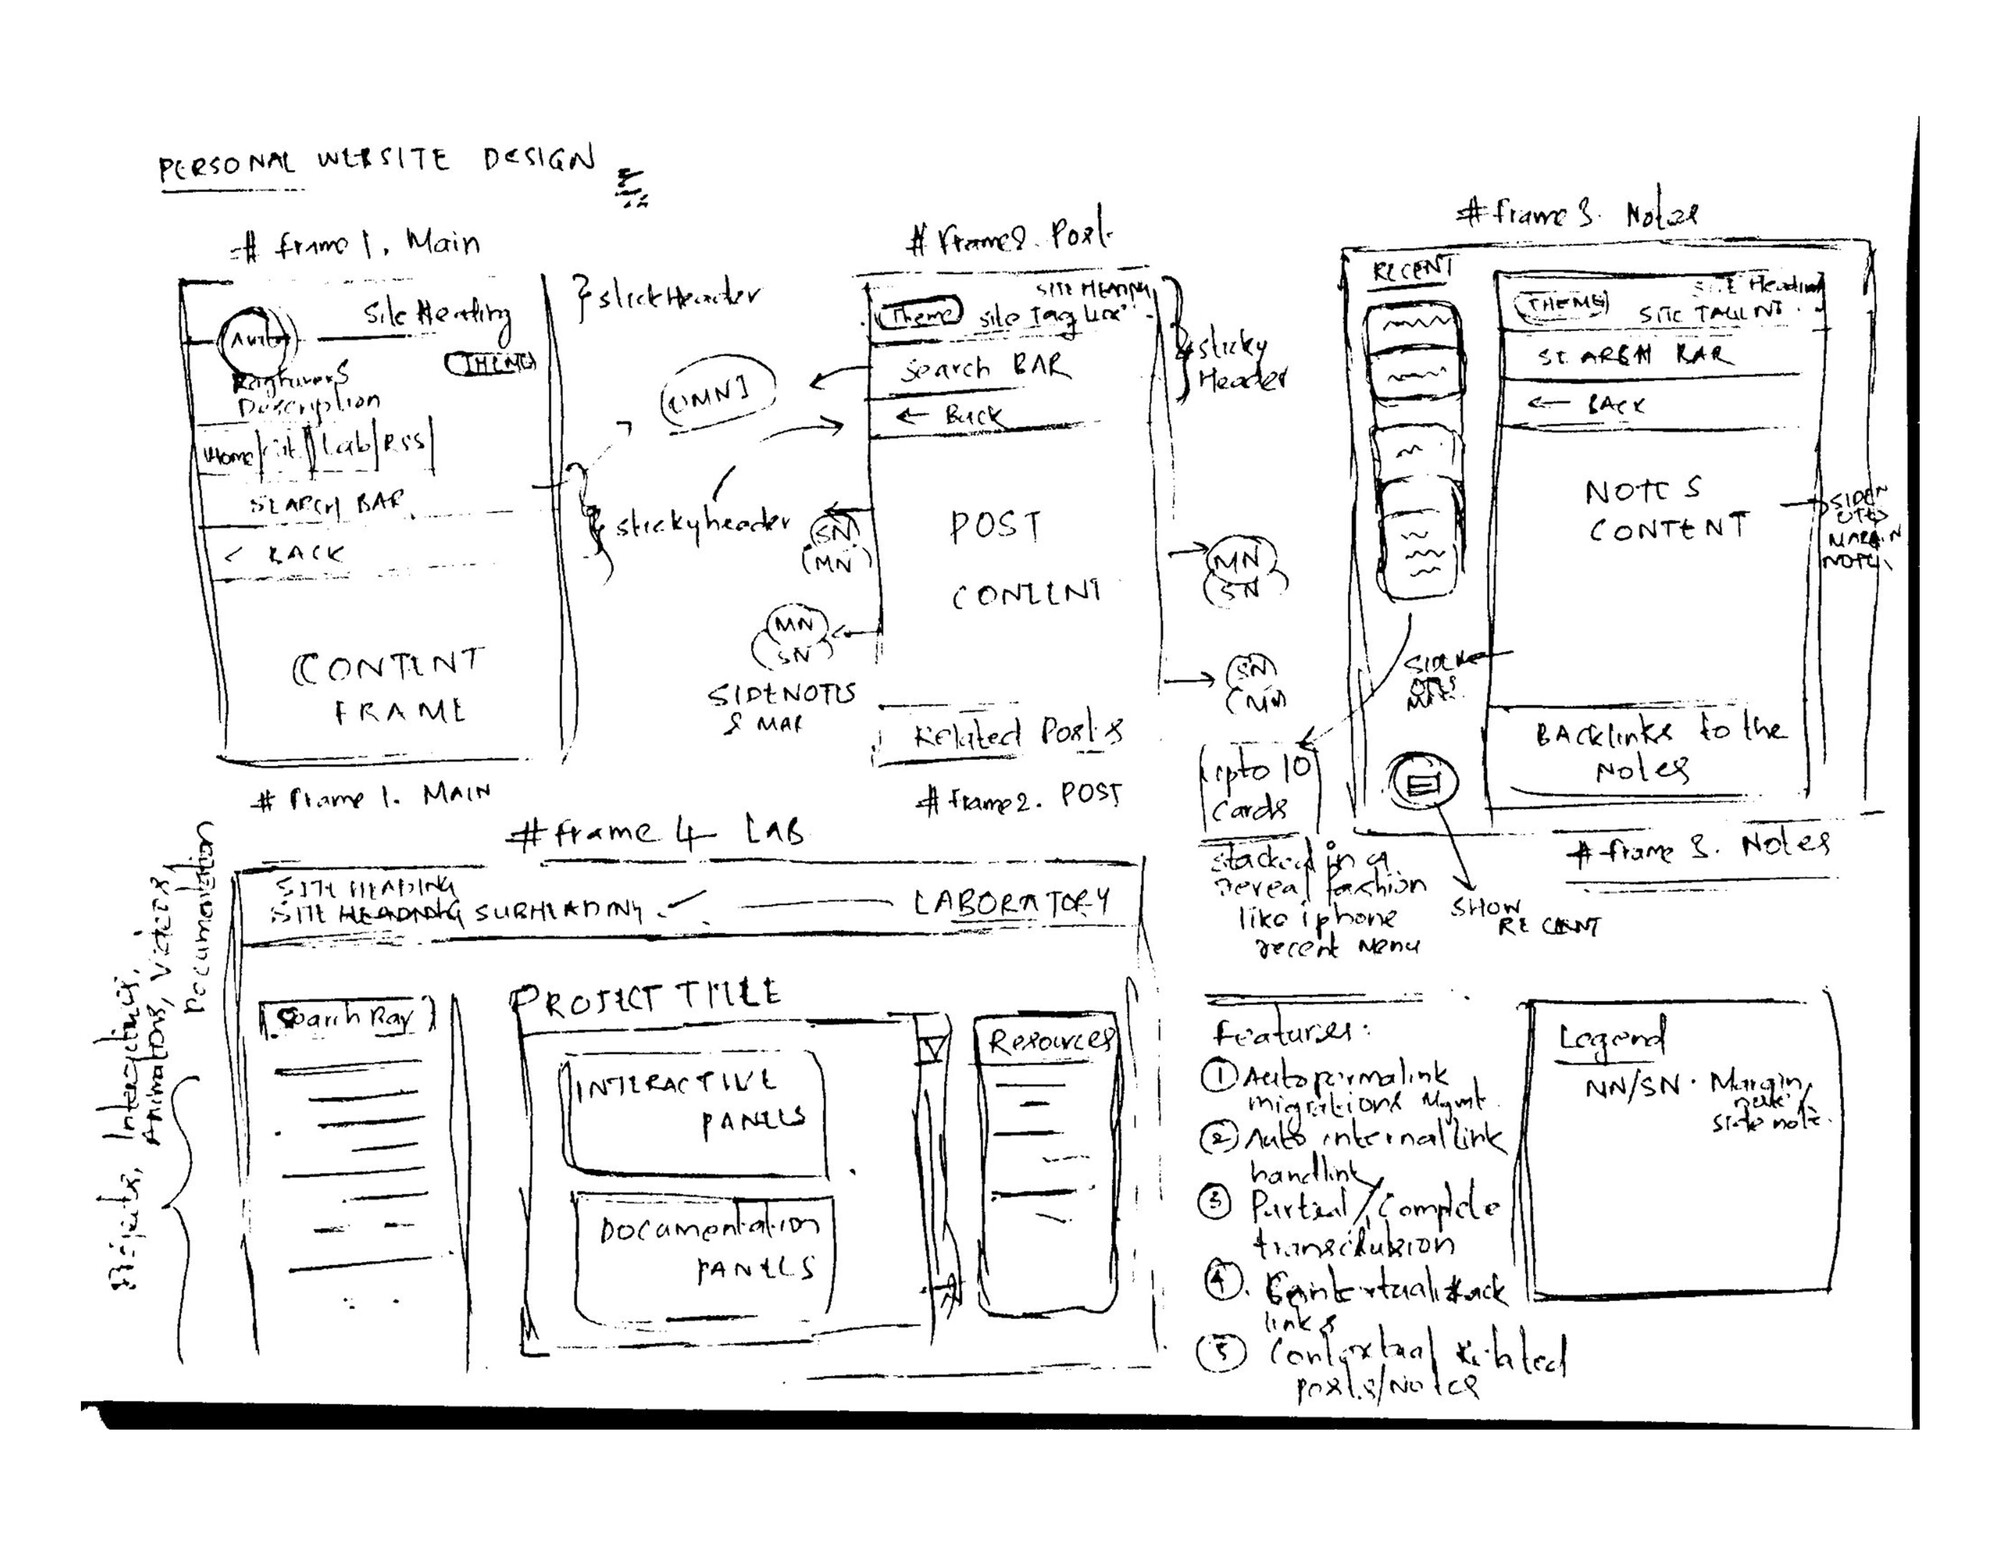 PERSONAL WEBSITE DESIGN
# frame 1. Main
Site Heading
THEME
Description
Home
Lab
RSS
SEARCH BAR
< BACK
CONTENT
FRAME
# frame 1. MAIN
} stickHeader
OMNI
stickyheader
# Frame 2. Post
SITE HEADING
Theme
Site Tag Line
Search BAR
← Back
sticky
Header
POST
CONTENT
SN
MN
MN
SN
SIDENOTES
MN
SN
SN
MN
Related Posts
# frame 2. POST
# frame 3. Notes
RECENT
Site Heading
THEME
SITE TAGLINE
SEARCH BAR
← BACK
NOTES
CONTENT
SIDEN
OTES
MARGIN
NOTES
SIDEN
OTES
Backlinks to the
Notes
# frame 3. Notes
upto 10
cards
stacked in a
reveal fashion
like iphone
recent menu
SHOW
RECENT
# frame 4 LAB
SITE HEADING
SITE HEADING SUBHEADING
LABORATORY
Projects, Interactives,
Animations, Videos,
Documentation
Search Bar
PROJECT TITLE
INTERACTIVE
PANELS
Documentation
PANELS
Resources
Features:
① Auto permalink
migrations Mgmt.
② Auto internal link
handlink
③ Partial/Complete
transclusion
④. Contextual back
links
⑤ Contextual related
posts/Notes
Legend
NN/SN · Margin
note/
side note.